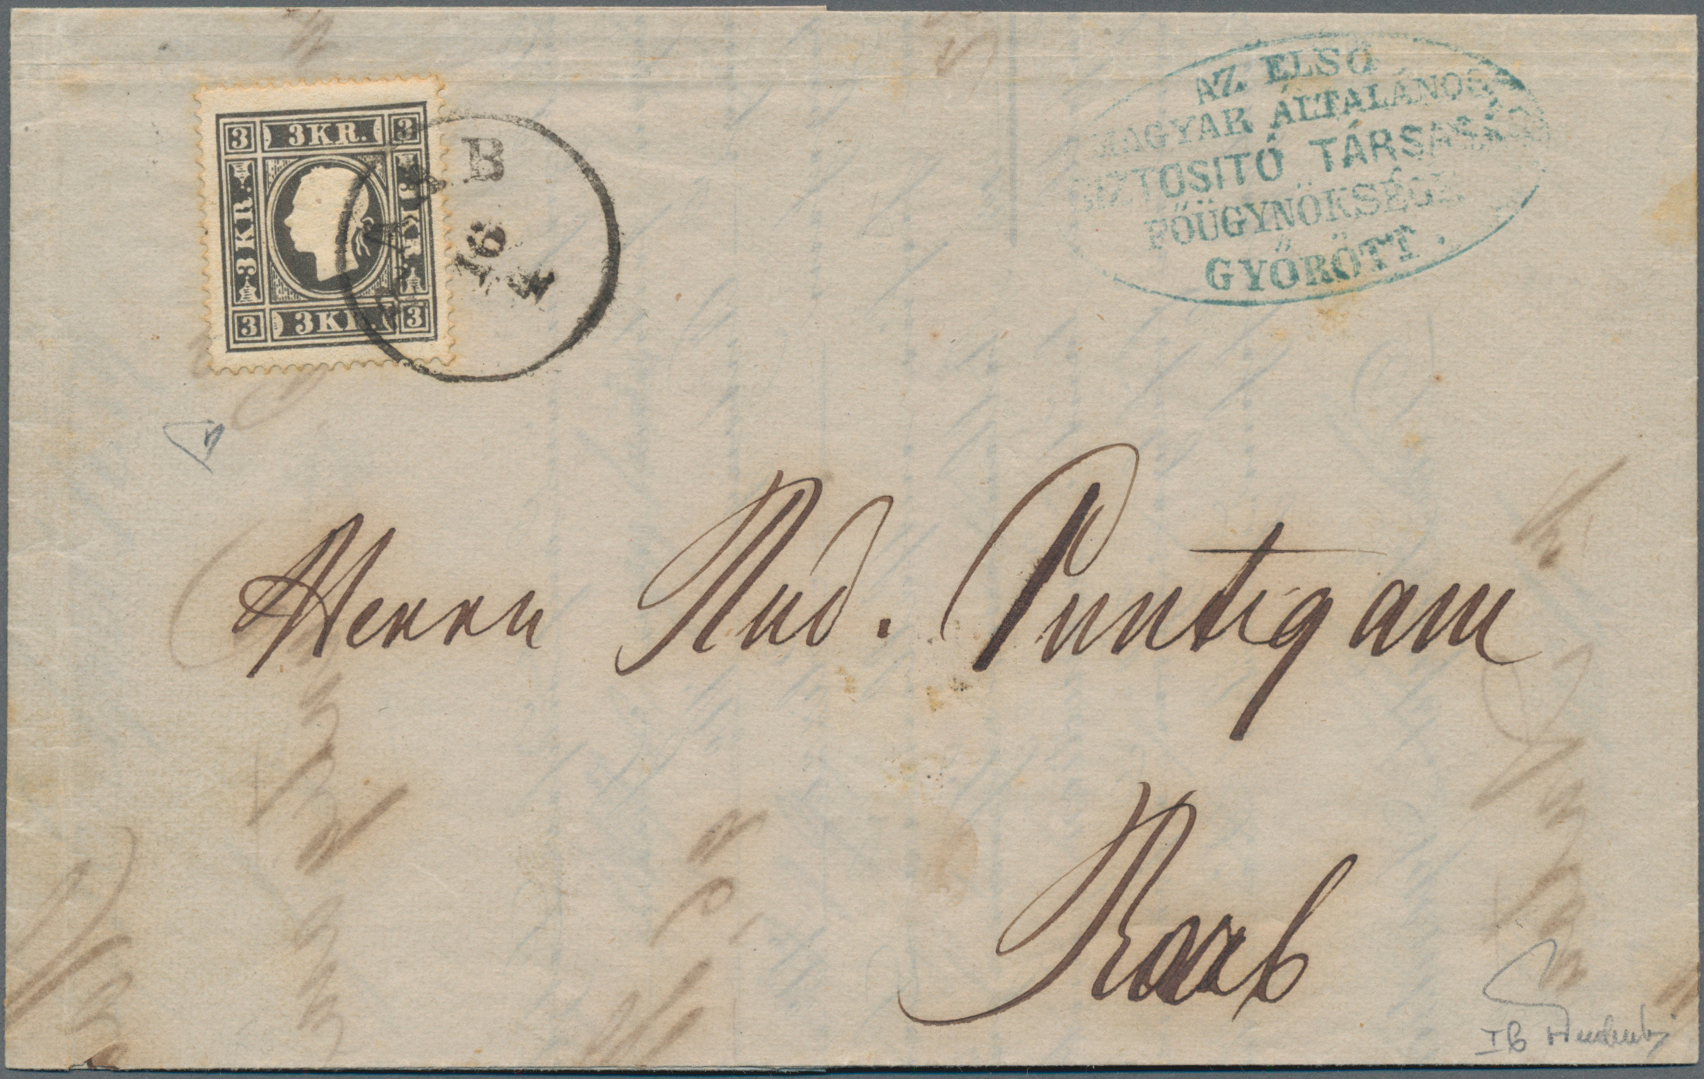 3 3KR. 3
3 KR.
3 3KR. 3
RAAB
16
4
AZ ELSŐ
MAGYAR ÁLTALÁNOS
BIZTOSITÓ TÁRSASÁG
FŐÜGYNÖKSÉGE
GYŐRÖTT.
Herrn Rud. Puntigam
Raab